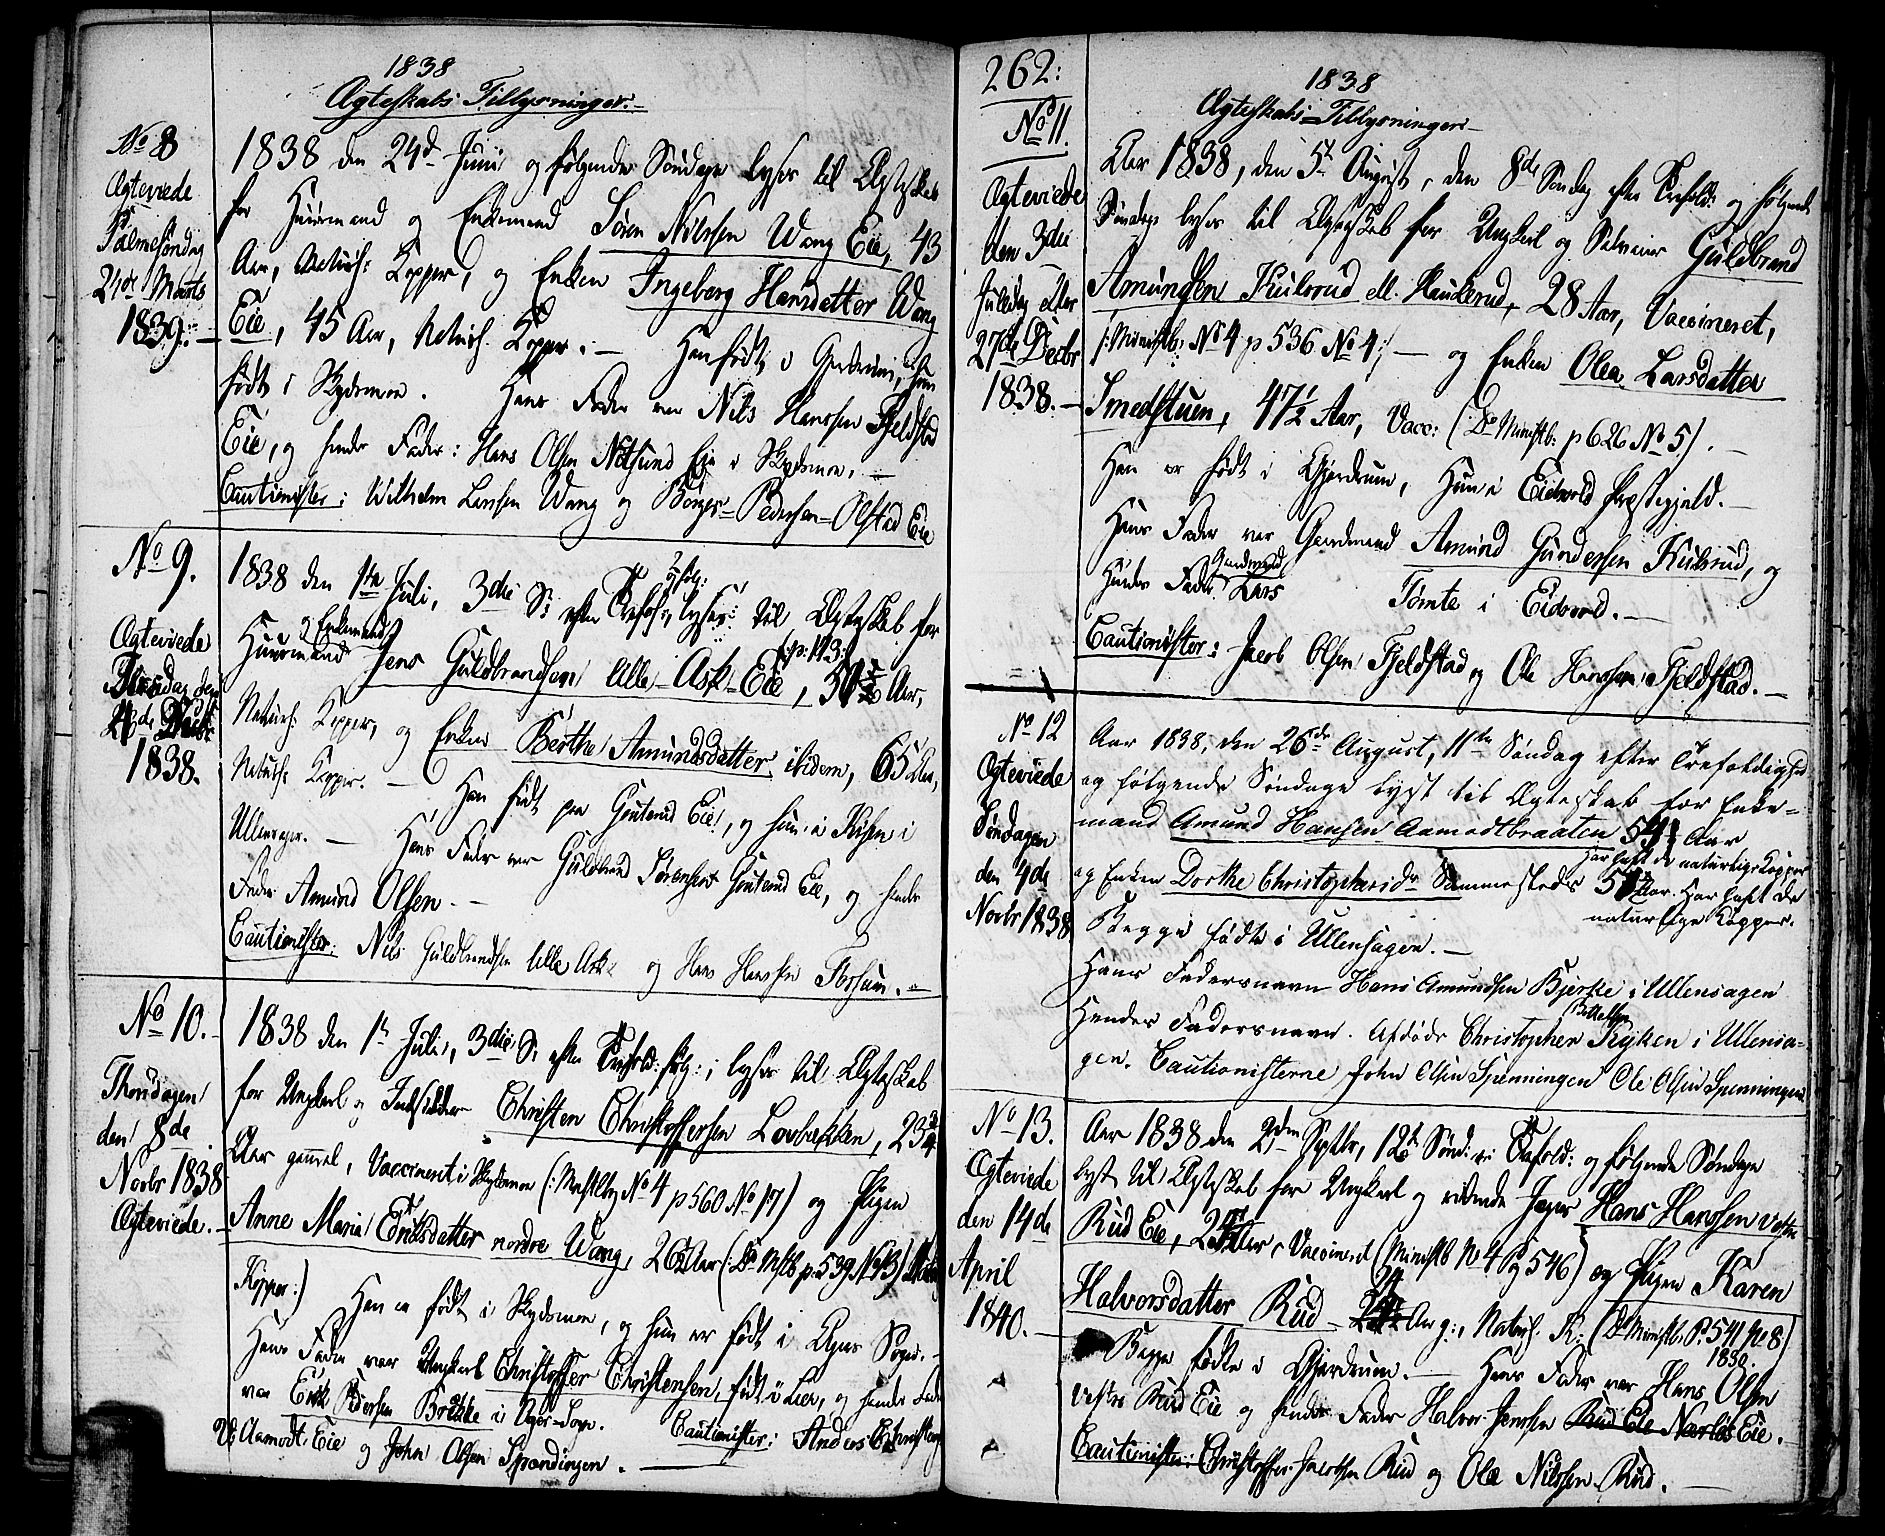 1838
Ægteskabs Tillysninger.
No 8
Ægteviede
Palmesøndag
24de Marts
1839.
1838 den 24d Juni og følgende Søndage lyser til Ægteskab
for Huusmand og Enkemand Søren Nilssen Wang Eie, 43
Aar, Naturl: Kopper, og Enken Ingeborg Hansdatter Wang
Eie, 45 Aar, Naturl. Kopper. Han født i Gjerdrum, hun
født i Skydsmoe. Hans Fader var Nils Hanssen Fjeldstad
Eie, og hendes Fader: Hans Olsen Eie i Skydsmoe.
Cautionister: Wilhelm Larssen Wang og Borger Pedersen Ølstad Eie
No 9.
Ægteviede
den
1838.
1838 den 1ste Juli, 3die S: efter Trefol: og følg: lyser til Ægteskab for
Huusmand og Enkemand Jens Guldbrandsen Lille-Ask-Eie, Aar,
Naturl: Kopper, og Enken Berthe Amundsdatter ibidem, 65 Aar,
Naturl: Kopper. Han født paa Eie, og hun i i
Ullensager. Hans Fader var Guldbrand Sørensen Eie, og hendes
Fader Amund Olsen.
Cautionister: Nils Guldbrandsen Lille Ask og Hans Hanssen
No 10.
Thorsdagen
den 8de
Novbr 1838
Ægteviede.
1838 den 1ste Juli, 3die S: efter Trefold: følg: lyser til Ægteskab
for Ungkarl og Inderster Christen Christoffersen Lovbakken, 23
Aar gammel, Vaccineret i Skydsmoe (: No 4 p 560 No 17) og Pigen
Anne Maria Eriksdatter nordre Wang, 26 Aar (: Do p. 539
Kopper:) Han er født i Skydsmoe, og hun er født i Agers Sogn.
Hans Fader var Ungkarl Christoffer Christensen, født i Lier, og hendes Fader
var Erik Pedersen i Ager-Sogn. Cautionister: Anders Christens
Aamodt Eie og John Olsen
262:
1838
Ægteskabs-Tillysninger
No 11.
Ægteviede
den 3die
Juledag eller
27de Decbr
1838.
Aar 1838, den 5te August, den 8de Søndag efter Trefold: og følgende
Søndage lyser til Ægteskab for Ungkarl og Selveier Guldbrand
Amundsen Kulsrud ell. Haukerud, 28 Aar, Vaccineret,
/: Ministb: No 4 p 536 No 4 :/ og Enken Olea Larsdatter
Smedstuen, 47½ Aar, Vacc: (Do Ministb: p 626 No 5).
Han er født i Gjerdrum, Hun i Eidsvold Præstegjeld.
Hans Fader var Gaardmand Amund Gundersen Kulsrud, og
Hendes Fader Gaardmand Lars Tømte i Eidsvold.
Cautionister: Jacob Olsen Fjeldstad og Ole Hanssen Fjeldstad.
No 12
Ægteviede
Søndagen
den 4de
Novbr 1838
Aar 1838, den 26de August, 11te Søndag efter Trefoldighed
og følgende Søndage lyst til Ægteskab for Enke-
mand Amund Hansen Aamodtbraaten 54 Aar
Har haft de naturlige Kopper
og Enken Dorthe Christophersdr Sammesteds Aar. Har haft de
naturlige Kopper.
Begge fødte i Ullensagen.
Hans Fadersnavn Hans Amundsen Bjerke i Ullensagen
Hendes Fadersnavn. Afdøde Christopher Kyken i Ullensa-
gen. Cautionisterne John Olsen Spenningen Ole Olsen Spenningen
No 13.
Ægteviede
den 14de
April
1840.
Aar 1838 den 2den Septbr, 12te Sønd: e: Trefold: og følgende Søndage
lyst til Ægteskab for Ungkarl og ridende Jæger Hans Hanssen
Rud Eie, Aar, Vaccineret (Ministb No 4 Pg 546) og Pigen Karen
Halvorsdatter Rud 24 Aar g:, Naturl. K: (Do Ministb P. 541 No 8)
1830.
Begge fødte i Gjerdrum. Hans Fader var Hans Olsen
Vestre Rud Eie og hendes Fader Halvor Jenssen Rud Eie Eie.
Cautionister: Christoffer Rud og Ole Nilssen Rud.